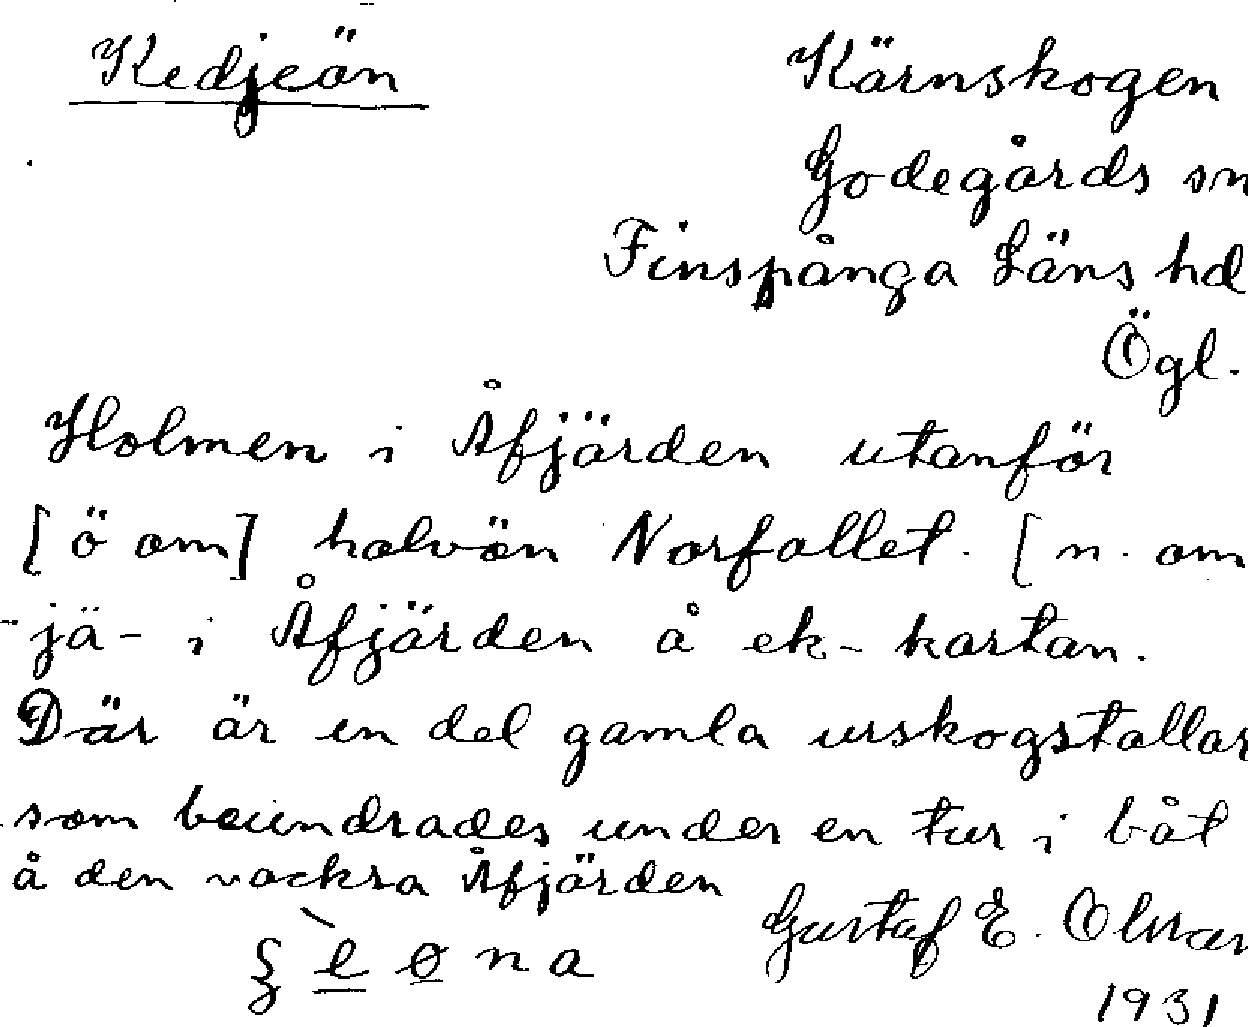 Kedjeön
Kärnskogen
Godegårds sn
Finspånga Läns hd
Ögl.
Holmen i Åfjärden utanför
[ö om] halvön Norfallet. [n. om
-jä- i Åfjärden å ek-kartan.
Där är en del gamla urskogstallar
som beundrades under en tur i båt
å den vackra Åfjärden
Gustaf E. Olsson
1931